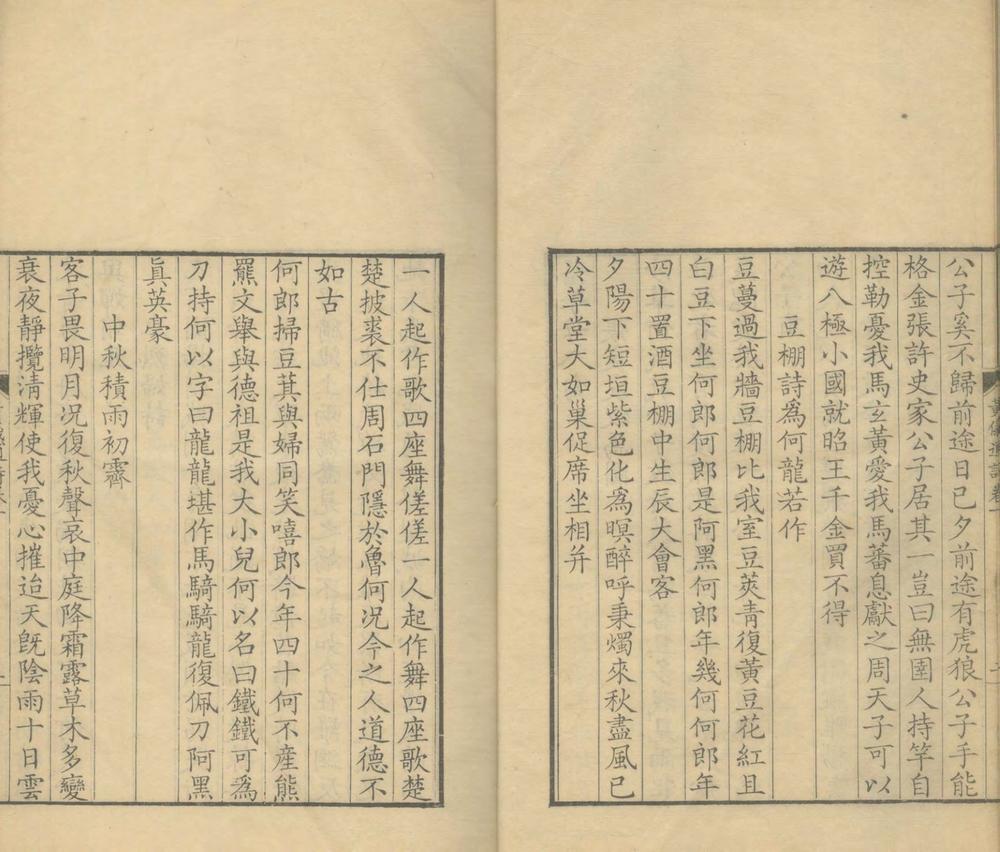 公子奚不歸前途日已夕前途有虎狼公子手能
格金張許史家公子居其一豈曰無圉人持竿自
控勒憂我馬玄黃愛我馬蕃息獻之周天子可以
遊八極小國就昭王千金買不得
豆棚詩為何龍若作
豆蔓過我牆豆棚比我室豆莢青復黃豆花紅且
白豆下坐何郎何郎是阿黑何郎年幾何何郎年
四十置酒豆棚中生辰大會客
夕陽下短垣紫色化為暝醉呼秉燭來秋盡風已
冷草堂大如巢促席坐相并
一人起作歌四座舞傞傞一人起作舞四座歌楚
楚披裘不仕周石門隱於魯何況今之人道德不
如古
何郎掃豆萁與婦同笑嘻郎今年四十何不產熊
羆文舉與德祖是我大小兒何以名曰鐵鐵可為
刀持何以字曰龍龍堪作馬騎騎龍復佩刀阿黑
眞英豪
中秋積雨初霽
客子畏明月况復秋聲哀中庭降霜露草木多變
衰夜靜攬淸輝使我憂心摧迨天旣陰雨十日雲